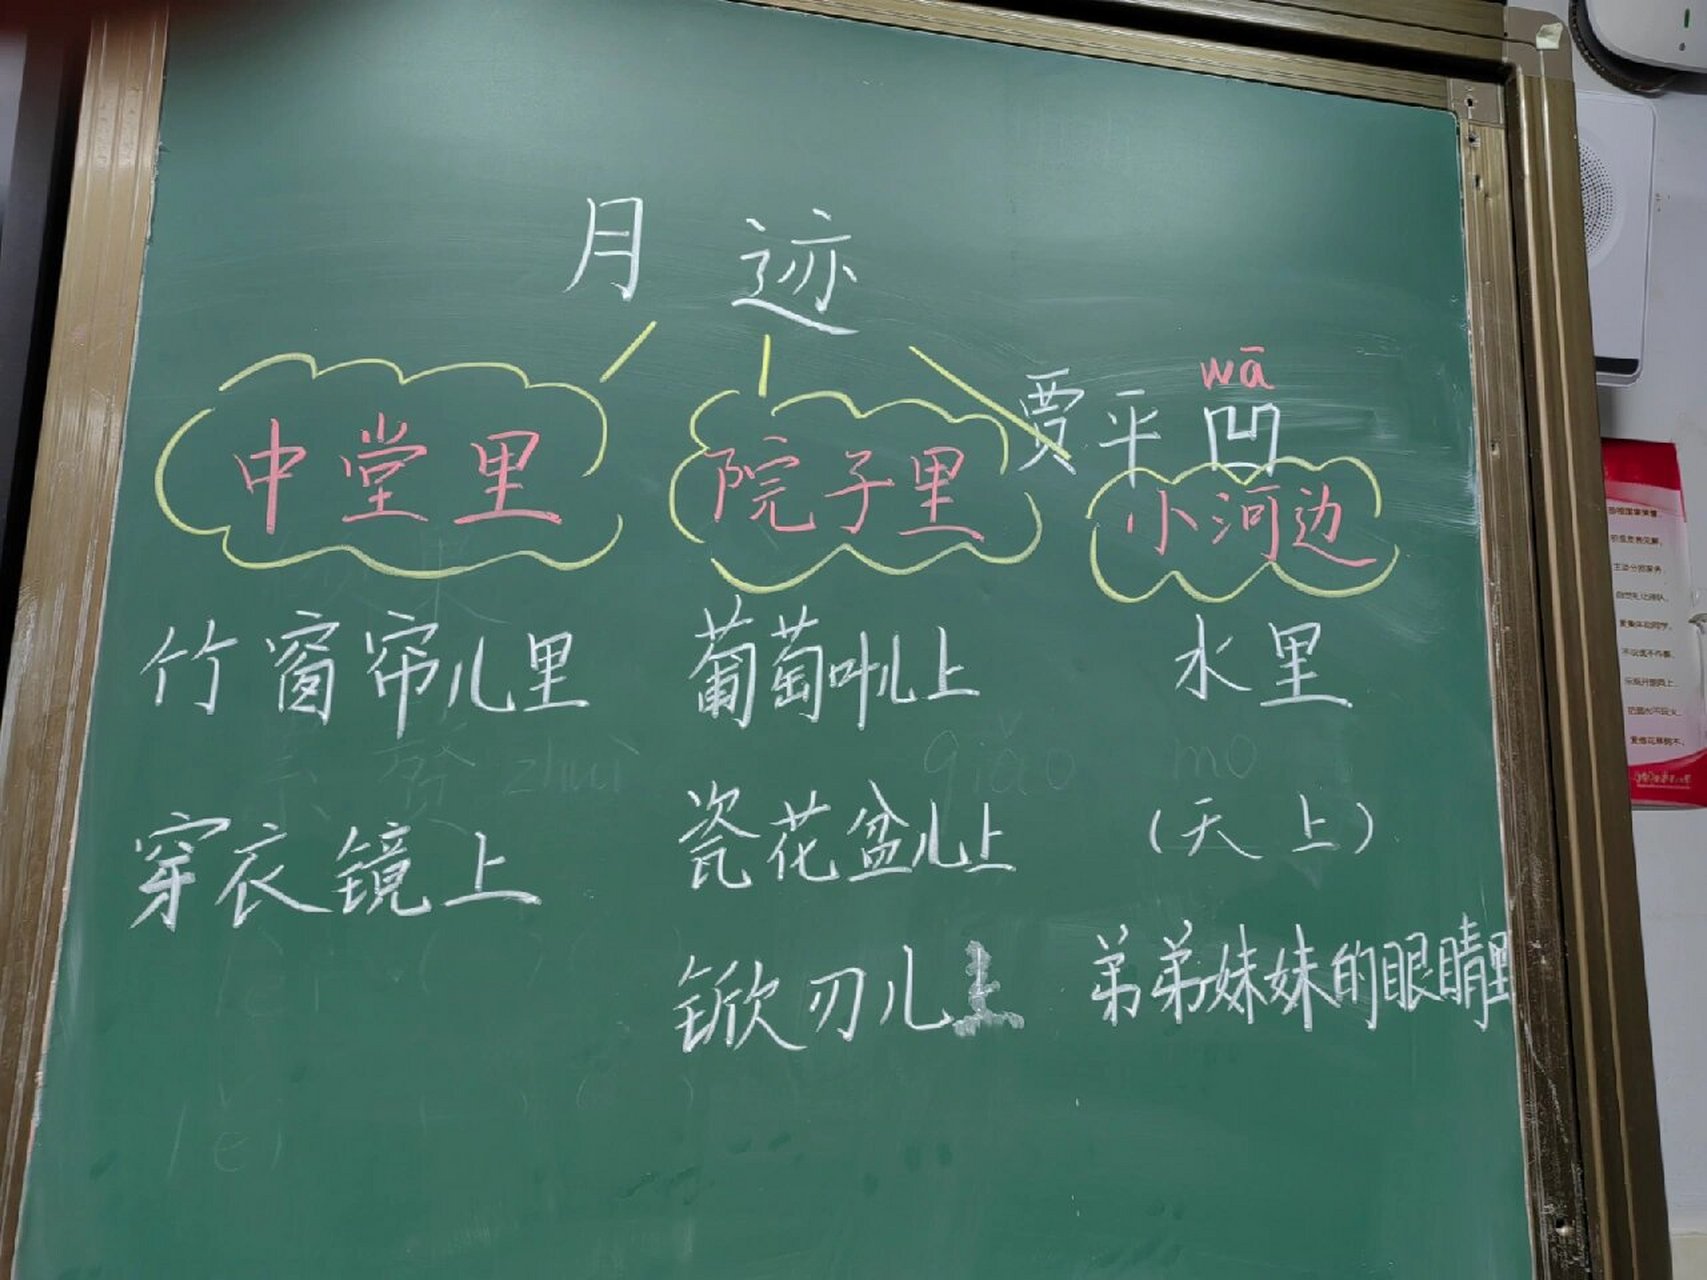 月迹
wā
贾平凹
中堂里
院子里
小河边
竹窗帘儿里
葡萄叶儿上
水里
穿衣镜上
瓷花盆儿上
(天上)
锨刃儿上
弟弟妹妹的眼睛里